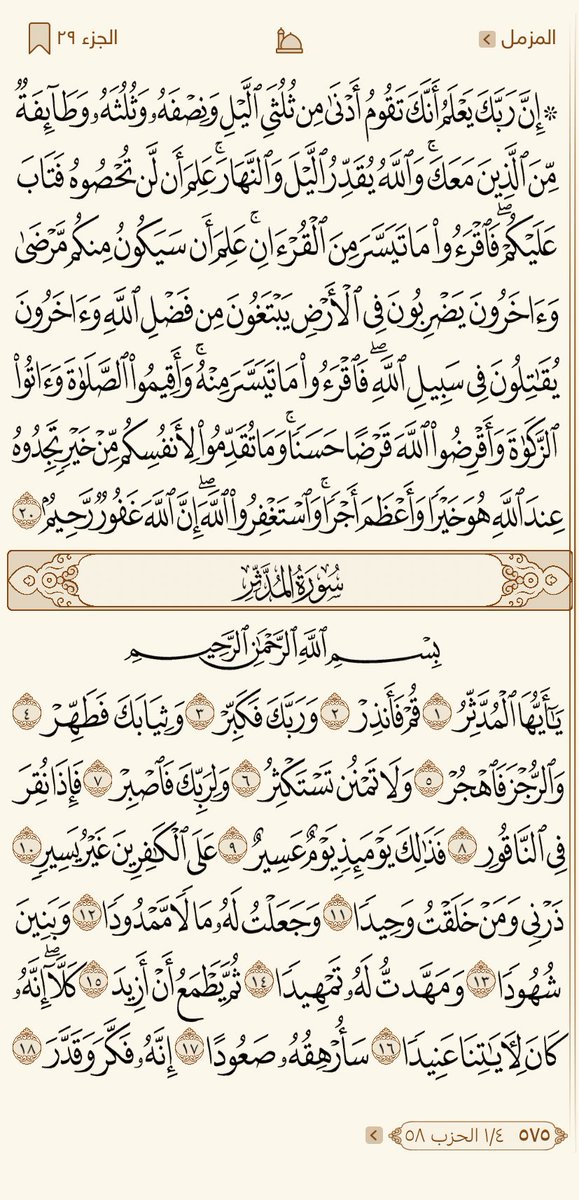 المزمل
الجزء ٢٩
۞ إِنَّ رَبَّكَ يَعۡلَمُ أَنَّكَ تَقُومُ أَدۡنَىٰ مِن ثُلُثَيِ ٱلَّيۡلِ وَنِصۡفَهُۥ وَثُلُثَهُۥ وَطَآئِفَةٞ
مِّنَ ٱلَّذِينَ مَعَكَۚ وَٱللَّهُ يُقَدِّرُ ٱلَّيۡلَ وَٱلنَّهَارَۚ عَلِمَ أَن لَّن تُحۡصُوهُ فَتَابَ
عَلَيۡكُمۡۖ فَٱقۡرَءُواْ مَا تَيَسَّرَ مِنَ ٱلۡقُرۡءَانِۚ عَلِمَ أَن سَيَكُونُ مِنكُم مَّرۡضَىٰ
وَءَاخَرُونَ يَضۡرِبُونَ فِي ٱلۡأَرۡضِ يَبۡتَغُونَ مِن فَضۡلِ ٱللَّهِ وَءَاخَرُونَ
يُقَٰتِلُونَ فِي سَبِيلِ ٱللَّهِۖ فَٱقۡرَءُواْ مَا تَيَسَّرَ مِنۡهُۚ وَأَقِيمُواْ ٱلصَّلَوٰةَ وَءَاتُواْ
ٱلزَّكَوٰةَ وَأَقۡرِضُواْ ٱللَّهَ قَرۡضًا حَسَنٗاۚ وَمَا تُقَدِّمُواْ لِأَنفُسِكُم مِّنۡ خَيۡرٖ تَجِدُوهُ
عِندَ ٱللَّهِ هُوَ خَيۡرٗا وَأَعۡظَمَ أَجۡرٗاۚ وَٱسۡتَغۡفِرُواْ ٱللَّهَۖ إِنَّ ٱللَّهَ غَفُورٞ رَّحِيمُۢ ٢٠
سُورَةُ المُدَّثِّرِ
بِسۡمِ ٱللَّهِ ٱلرَّحۡمَٰنِ ٱلرَّحِيمِ
يَٰٓأَيُّهَا ٱلۡمُدَّثِّرُ ١ قُمۡ فَأَنذِرۡ ٢ وَرَبَّكَ فَكَبِّرۡ ٣ وَثِيَابَكَ فَطَهِّرۡ ٤
وَٱلرُّجۡزَ فَٱهۡجُرۡ ٥ وَلَا تَمۡنُن تَسۡتَكۡثِرُ ٦ وَلِرَبِّكَ فَٱصۡبِرۡ ٧ فَإِذَا نُقِرَ
فِي ٱلنَّاقُورِ ٨ فَذَٰلِكَ يَوۡمَئِذٖ يَوۡمٌ عَسِيرٌ ٩ عَلَى ٱلۡكَٰفِرِينَ غَيۡرُ يَسِيرٖ ١٠
ذَرۡنِي وَمَنۡ خَلَقۡتُ وَحِيدٗا ١١ وَجَعَلۡتُ لَهُۥ مَالٗا مَّمۡدُودٗا ١٢ وَبَنِينَ
شُهُودٗا ١٣ وَمَهَّدتُّ لَهُۥ تَمۡهِيدٗا ١٤ ثُمَّ يَطۡمَعُ أَنۡ أَزِيدَ ١٥ كَلَّآۖ إِنَّهُۥ
كَانَ لِأٓيَٰتِنَا عَنِيدٗا ١٦ سَأُرۡهِقُهُۥ صَعُودًا ١٧ إِنَّهُۥ فَكَّرَ وَقَدَّرَ ١٨
٥٧٥ ١/٤ الحزب ٥٨